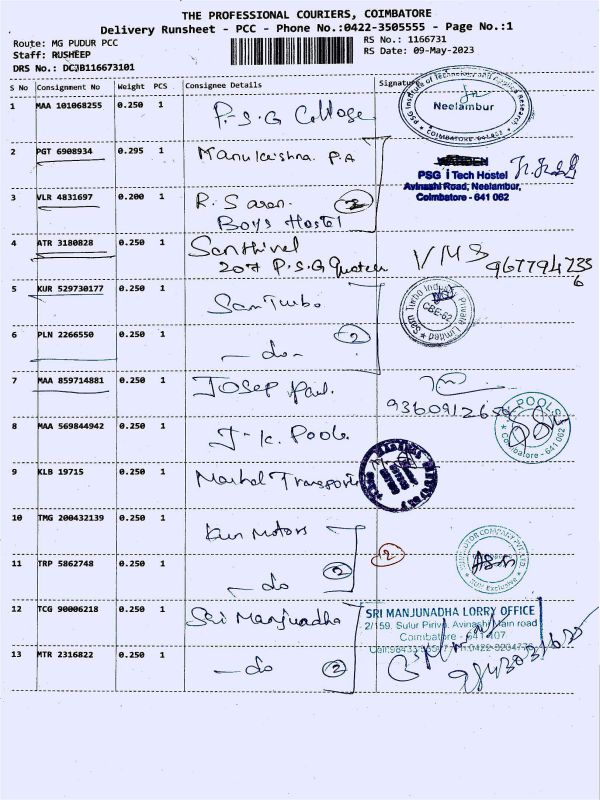 THE PROFESSIONAL COURIERS, COIMBATORE
Delivery Runsheet - PCC - Phone No.:0422-3505555 - Page No.:1
Route: MG PUDUR PCC
RS No.: 1166731
Staff: RUSHEEP
RS Date: 09-May-2023
DRS No.: DCJB116673101
S No Consignment No Weight PCS Consignee Details Signature
1 MAA 101068255 0.250 1 P.S.G College
PSG Institute of Technology and Applied Research
Neelambur
* COIMBATORE-641 062 *
2 PGT 6908934 0.295 1 Manukrishna. P.A
WARDEN
PSG i Tech Hostel
Avinashi Road, Neelambur,
Coimbatore - 641 062
3 VLR 4831697 0.200 1 R. Saren 2
Boys Hostel
4 ATR 3180828 0.250 1 Senthivel VMS
207 P.S.G 9677947356
5 KUR 529730177 0.250 1 Sam Turbo
Sam Turbo Industry Private Limited
CBE-62
6 PLN 2266550 0.250 1 - do - 2
7 MAA 859714881 0.250 1 Josep Paul.
8 MAA 569844942 0.250 1 J-K. Pools
POOLS
Coimbatore - 641 062
9 KLB 19715 0.250 1 Transport
10 TMG 200432139 0.250 1 Kun Motors
2
11 TRP 5862748 0.250 1 - do 2
MOTOR COMPANY PVT. LTD.
KUN Exclusive
12 TCG 90006218 0.250 1 Sri Manjunadha
SRI MANJUNADHA LORRY OFFICE
2/159, Sulur Pirivu, Avinashi Main road
Coimbatore - 641 407
13 MTR 2316822 0.250 1 - do 2